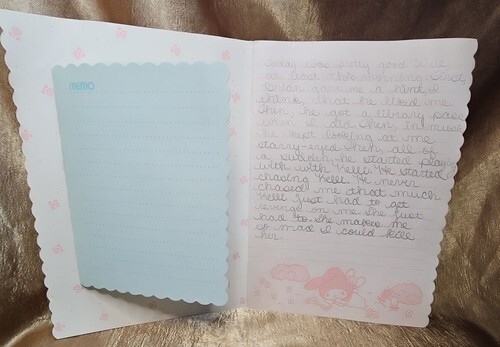 MEMO
today was pretty good. I've
at last this morning. First,
gave me a hint I
think, that he liked me
then he got a library pass
when I did. Then, in music
he kept looking at me
starry-eyed. Then, all of
a sudden, he started playing
with with Kelli. He started
chasing Kelli. He never
chased me that much
Kelli just had to get
revenge on me. She just
had to. She makes me
so mad I could kill
her.